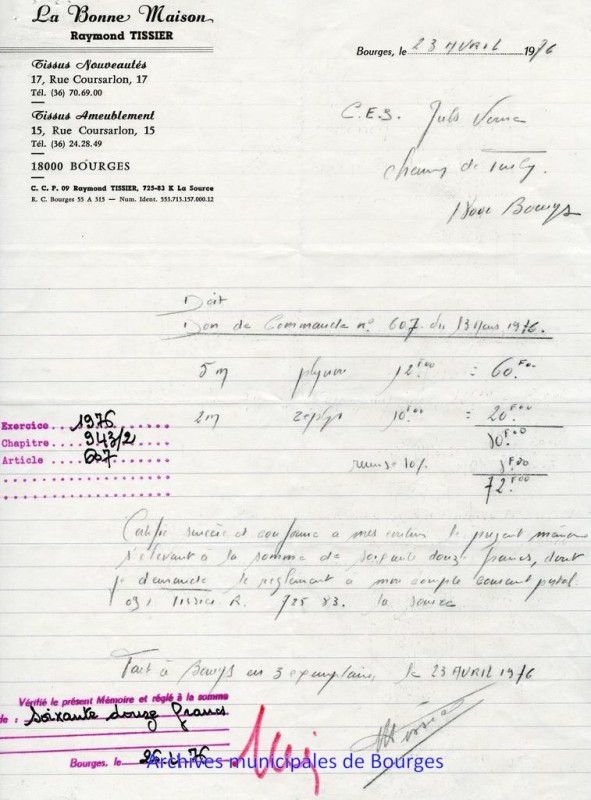 La Bonne Maison
Raymond TISSIER
Bourges, le 23 AVRIL 1976
Tissus Nouveautés
17, Rue Coursarlon, 17
Tél. (36) 70.69.00
Tissus Ameublement
15, Rue Coursarlon, 15
Tél. (36) 24.28.49
18000 BOURGES
C. C. P. 09 Raymond TISSIER, 725-83 K La Source
R. C. Bourges 55 A 315 — Num. Ident. 553.713.157.000.12
C.E.S. Jules Verne
Champ de
18000 Bourges
Doit
Bon de Commande n° 607 du 13 Mars 1976.
5m 12.F00 = 60.F00
2m zephyr 10.F00 = 20.F00
remise 10%
72.F00
Exercice 1976
Chapitre 943/2
Article 607
Certifié sincère et conforme à mes le présent mémoire
s'élevant à la somme de soixante douze francs, dont
je demande le règlement à mon compte courant postal
09, Tissier R. 725 83. La Source
Fait à Bourges en 3 exemplaires, le 23 AVRIL 1976
Vérifié le présent Mémoire et réglé à la somme
de : Soixante douze francs
Bourges, le 26 4 76
Archives municipales de Bourges